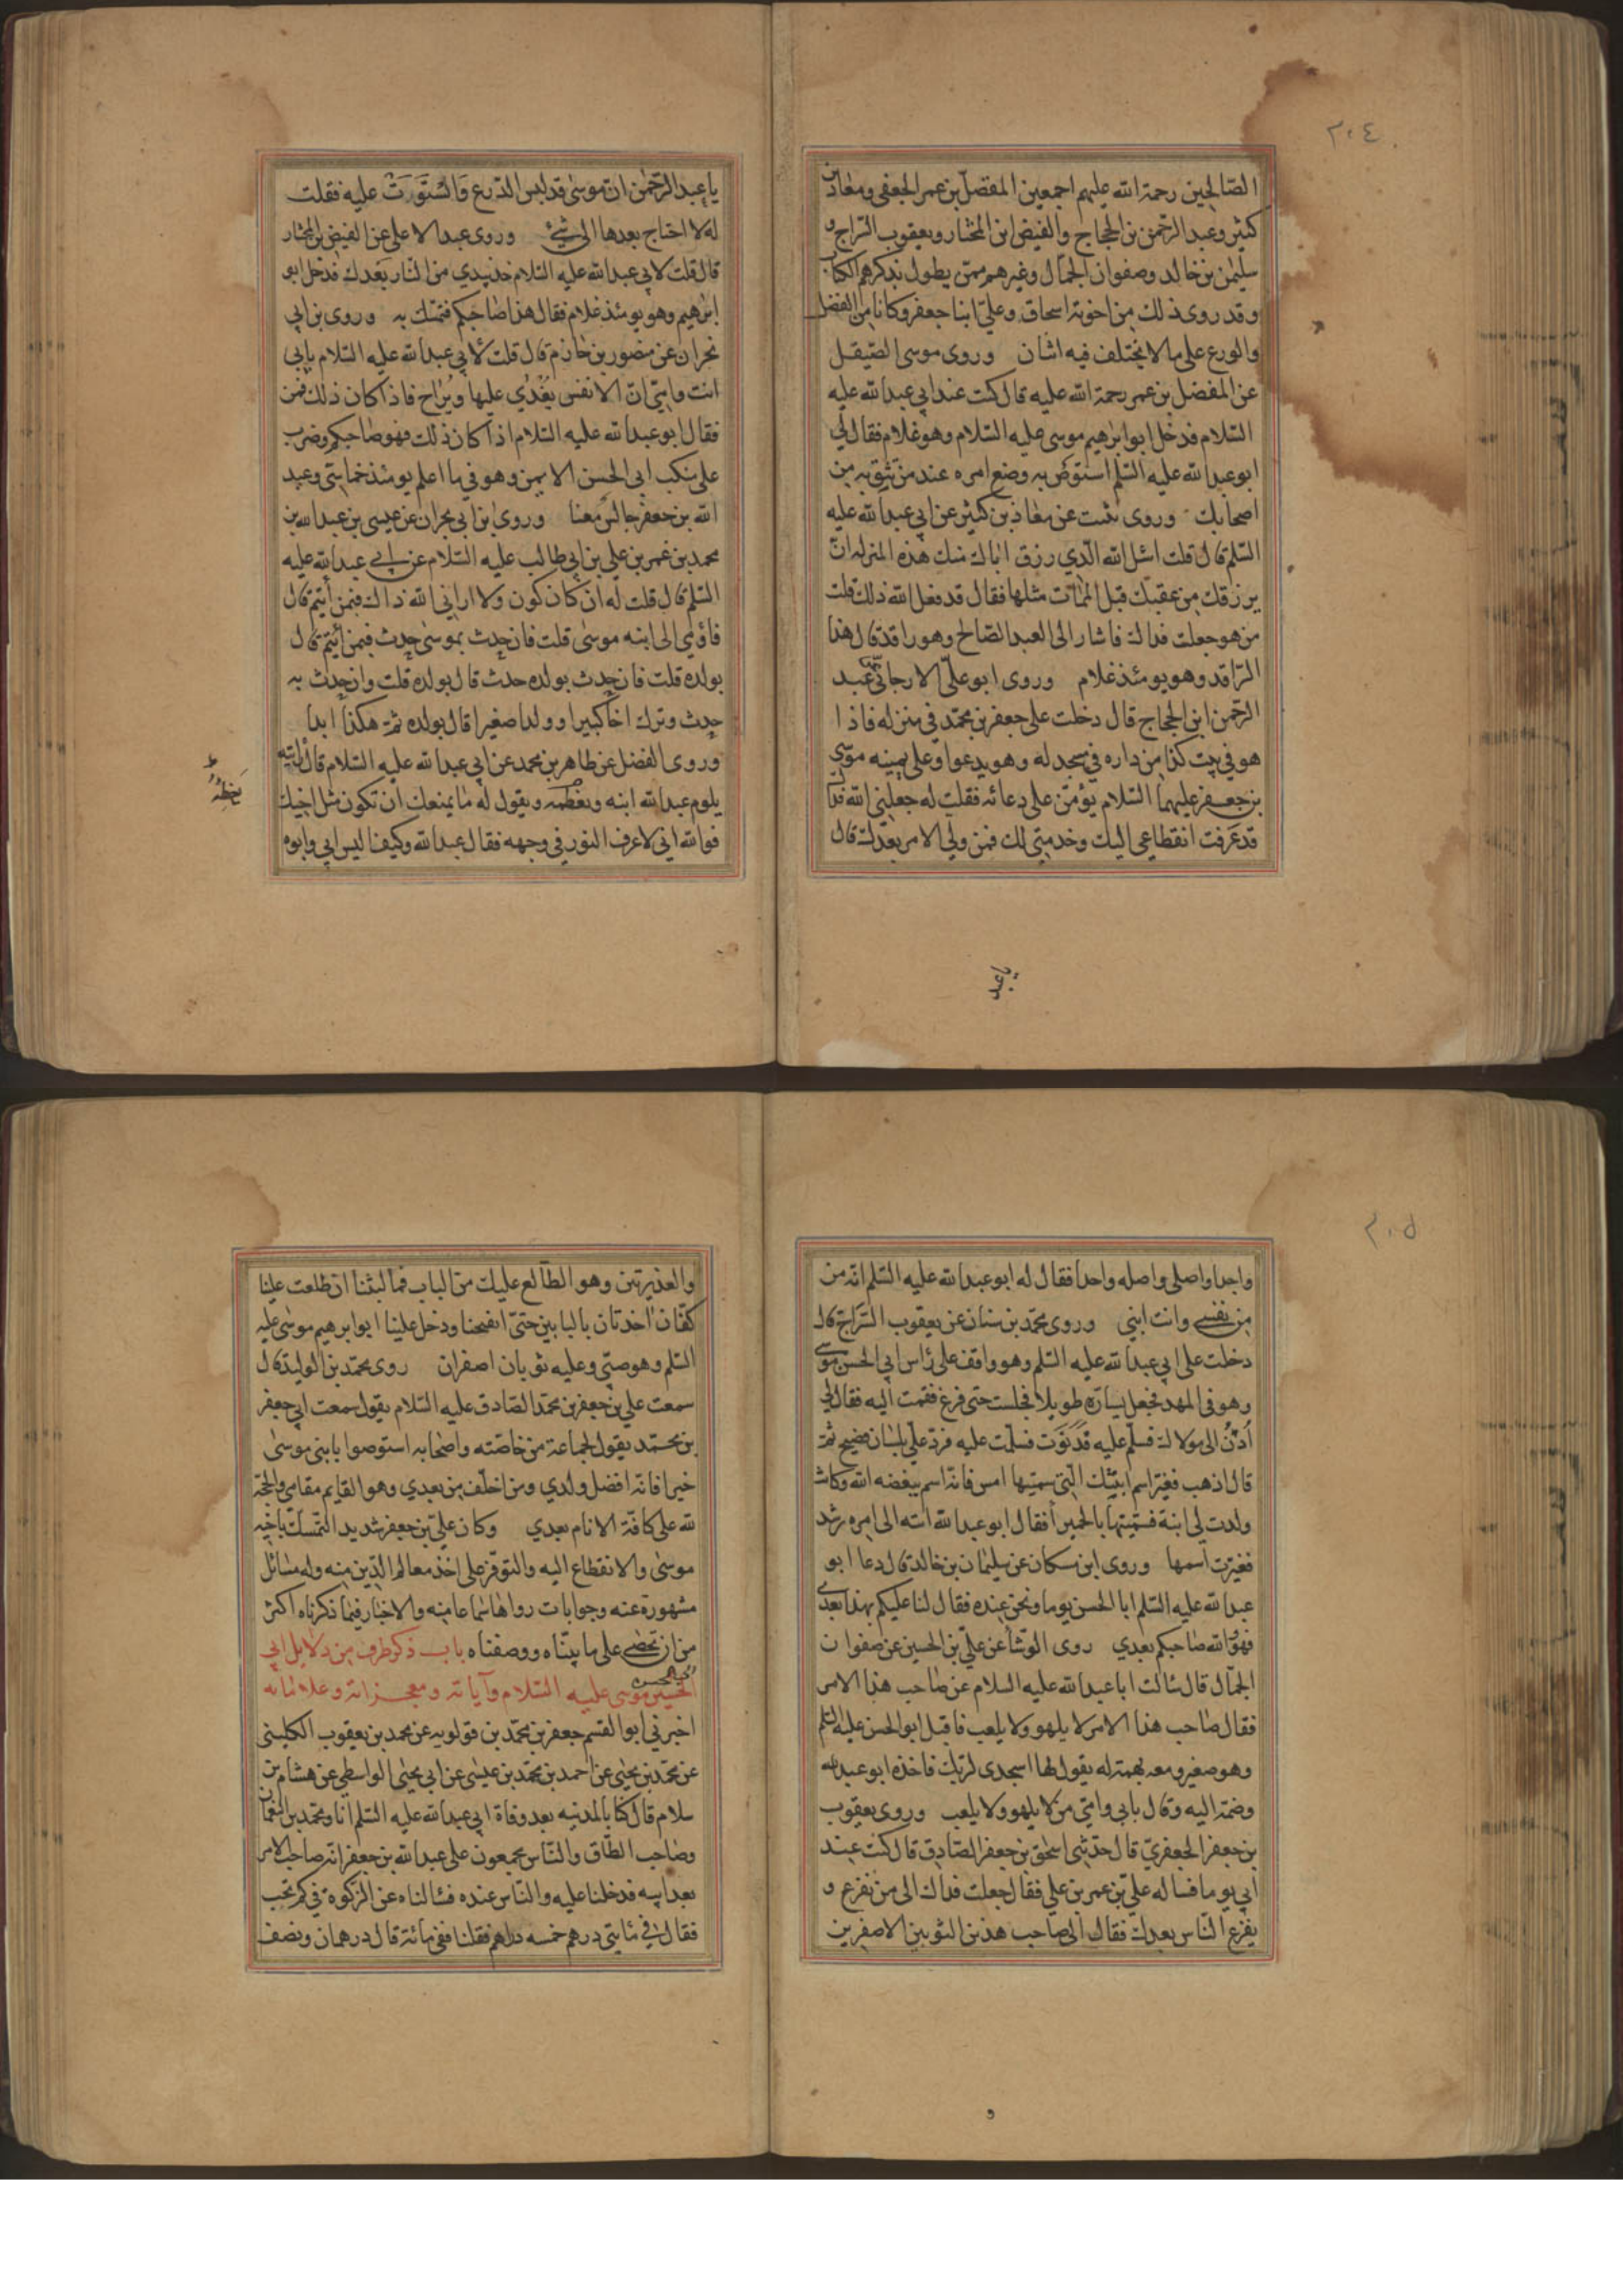 ٢٠٤
الصّالحين رحمة الله عليهم اجمعين المفضل بن عمر الجعفي ومعاذ بن
كثير وعبد الرّحمن بن الحجاج والفيض ابن المختار ويعقوب السّراج و
سليمن بن خالد وصفوان الجمال وغيرهم ممّن يطول بذكرهم الكتاب
وقد روى ذلك من اخوته اسحاق وعلي ابنا جعفر وكانا من الفضل
والورع على ما لا يختلف فيه اثنان وروى موسى الصّيقل
عن المفضل بن عمر رحمة الله عليه قال كنت عند ابي عبد الله عليه
السّلام فدخل ابو ابرهيم موسى عليه السّلام وهو غلام فقال لي
ابو عبد الله عليه السّلم استوص به وضع امره عند من تثق به من
اصحابك وروى ثبيت عن معاذ بن كثير عن ابي عبد الله عليه
السّلم قال قلت اسئل الله الّذي رزق اباك منك هذه المنزله ان
يرزقك من عقبك قبل الممات مثلها فقال قد فعل الله ذلك قلت
من هو جعلت فداك فاشار الى العبد الصّالح وهو راقد قال هذا
الرّاقد وهو يومئذ غلام وروى ابو عليّ الارجاني عن عبد
الرّحمن ابن الحجاج قال دخلت على جعفر بن محمّد في منزله فاذا
هو في بيت كذا من داره في مسجد له وهو يدعوا وعلى يمينه موسى
بن جعفر عليهما السّلام يؤمّن على دعائه فقلت له جعلني الله فداك
قد عرفت انقطاعي اليك وخدمتي لك فمن ولي الامر بعدك قال
يا عبد
يا عبد الرّحمن انّ موسى قد لبس الدّرع فَاسْتَوَرَتْ عليه فقلت
له لا احتاج بعدها الى شئ وروى عبد الاعلى عن الفيض بن المختار
قال قلت لابي عبد الله عليه السّلام خذ بيدي من النّار من بعدك فدخل ابو
ابرهيم وهو يومئذ غلام فقال هذا صاحبكم فتمسّك به وروى بن ابي
نجران عن منصور بن حازم قال قلت لابي عبد الله عليه السّلام بابي
انت وامّي انّ الانفس يغدي عليها ويراح فاذا كان ذلك فمن
فقال ابو عبد الله عليه السّلام اذا كان ذلك فهو صاحبكم وضرب
على منكب ابي الحسن الايمن وهو في ما اعلم يومئذ خماسيّ وعبد
الله بن جعفر جالس معنا وروى بن ابي نجران عن عيسى بن عبد الله بن
محمد بن عمر بن علي بن ابي طالب عليه السّلام عن ابي عبد الله عليه
السّلم قال قلت له ان كان كون ولا اراني الله ذاك فبمن أيتم قال
فاومى الى ابنه موسى قلت فان حدث بموسى حدث فبمن أئتم قال
بولده قلت فان حدث بولده حدث قال بولده قلت وان حدث به
حدث وترك اخا كبيرا وولدا صغيرا قال بولده ثمّ هكذا ابدا
وروى الفضل عن طاهر بن محمد عن ابي عبد الله عليه السّلام قال رايته
يلوم عبد الله ابنه ويعظمه ويقول له ما يمنعك ان تكون مثل اخيك
فوالله اني لاعرف النّور في وجهه فقال عبد الله وكيف اليس ابي وابوه
٢٠٥
واحدا واصلي واصله واحدا فقال له ابو عبد الله عليه السّلم انّه من
من نفسي وانت ابني وروى محمّد بن سنان عن يعقوب السّراج قال
دخلت على ابي عبد الله عليه السّلم وهو واقف على رأس ابي الحسن موسى
وهو في المهد فجعل يسارّه طويلا فجلست حتى فرغ فقمت اليه فقال لي
اُدْنُ الى مولاك فسلّم عليه فدنوت فسلّمت عليه فردّ عليّ بلسان فصيح ثمّ
قال اذهب فغيّر اسم ابنتك الّتي سميتها امس فانّه اسم يبغضه الله وكانت
ولدت لي ابنة فسمّيتها بالحميرآ فقال ابو عبد الله انته الى امره ترشد
فغيّرت اسمها وروى ابن مسكان عن سليمان بن خالد قال دعا ابو
عبد الله عليه السّلم ابا الحسن يوما ونحن عنده فقال لنا عليكم بهذا بعدي
فهو والله صاحبكم بعدي روى الوشّا عن عليّ بن الحسين عن صفوان
الجمّال قال سالت ابا عبد الله عليه السلام عن صاحب هذا الامر
فقال صاحب هذا الامر لا يلهو ولا يلعب فاقبل ابو الحسن عليه السّلم
وهو صغير ومعه بهمة له يقول لها اسجدى لربّك فاخذه ابو عبد الله
وضمّه اليه وقال بابي وامّي من لا يلهو ولا يلعب وروى يعقوب
بن جعفر الجعفريّ قال حدّثني اسحق بن جعفر الصّادق قال كنت عند
ابي يوما فساله عليّ بن عمر بن علي فقال جعلت فداك الى من نفزع و
يفزع النّاس بعدك فقال الى صاحب هذين الثّوبين الاصفرين
و
والغديرتين وهو الطّالع عليك من الباب فما لبثنا ان طلعت علينا
كفّان اخذتان بالبابين حتىّ انفتحنا ودخل علينا ابو ابرهيم موسى عليه
السّلم وهو صبيّ وعليه ثوبان اصفران روى محمّد بن الوليد قال
سمعت علي بن جعفر بن محمّد الصّادق عليه السّلام يقول سمعت ابي جعفر
بن محمّد يقول لجماعة من خاصّته واصحابه استوصوا بابني موسى
خيرا فانّه افضل ولدي ومن اخلّف من بعدي وهو القايم مقامي والحجّة
لله على كافّة الانام بعدي وكان عليّ بن جعفر شديد التّمسّك باخيه
موسى والانقطاع اليه والتوفّر على اخذ معالم الدّين منه وله مسائل
مشهورة عنه وجوابات رواها سماعا منه والاخبار فيما ذكرناه اكثر
من ان تحصى على ما بيّناه ووصفناه باب ذكر طرف من دلايل ابي
الحسن موسى عليه السّلام وآياته ومعجزاته وعلاماته
اخبرني ابو القسم جعفر بن محمّد بن قولويه عن محمد بن يعقوب الكلينى
عن محمّد بن يحيى عن احمد بن محمّد بن عيسى عن ابي يحيى الواسطي عن هشام بن
سلام قال كنّا بالمدينه بعد وفاة ابي عبد الله عليه السّلم انا ومحمّد بن النعمان
وصاحب الطّاق والنّاس مجمعون على عبد الله بن جعفر انّه صاحب الامر
بعد ابيه فدخلنا عليه والنّاس عنده فسالناه عن الزّكوة في كم تجب
فقال في مائتي درهم خمسه دراهم فقلنا ففي مائة قال درهمان ونصف